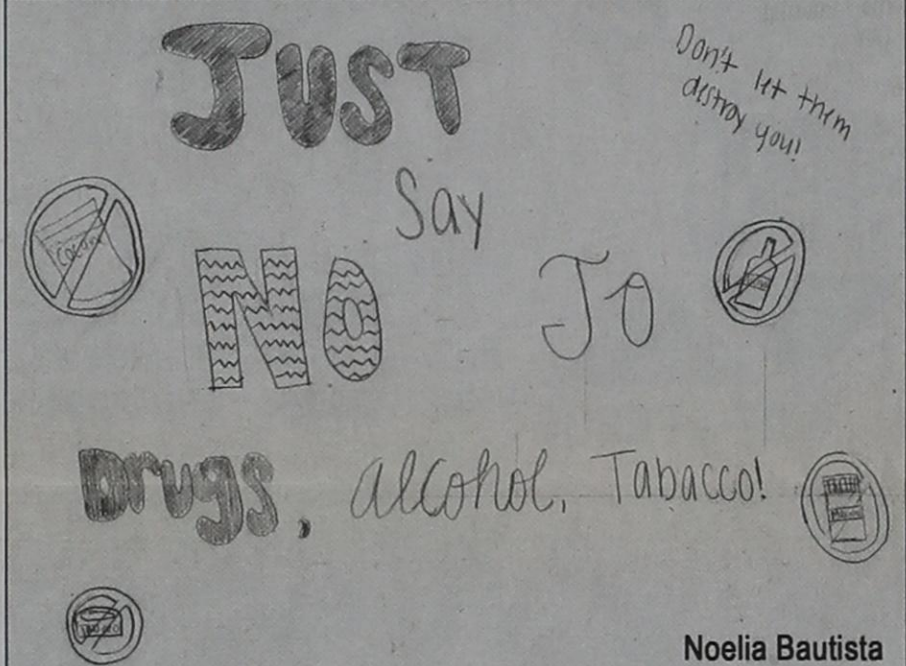 JUST
Don't let them
destroy you!
Say
NO TO
Drugs, alcohol, Tabacco!
Noelia Bautista